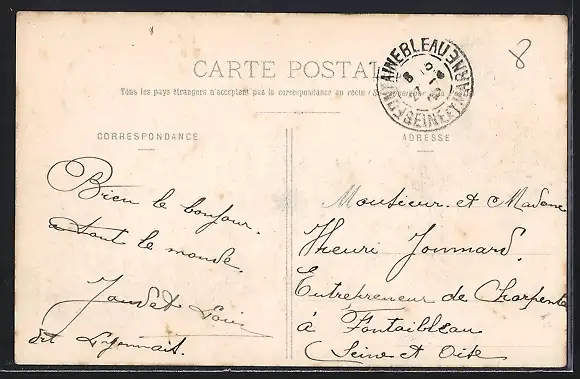 CARTE POSTALE
Tous les pays étrangers n'acceptent pas la correspondance au recto (Se renseigner à la
CORRESPONDANCE
Bien le bonjour.
a tout le monde.
Jaudet Louis
dit Lyonnais.
FONTAINEBLEAU
SEINE-ET-MARNE
8
ADRESSE
Monsieur et Madame
Henri Jommard.
Entrepreneur de Charpente
à Fontaibleau
Seine et Oise